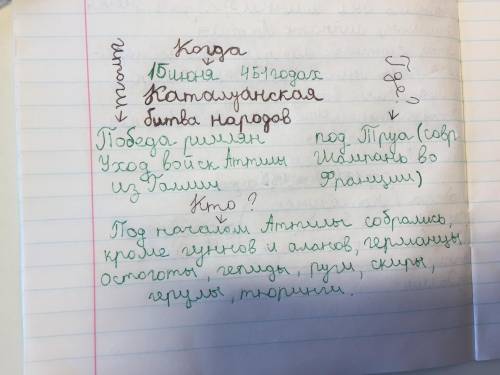 Когда
15 июня 451 годах
Каталуанская
битва народов
итог
Где?
Победа римлян
Уход войск Аттилы
из Галлии
под Труа (совр
Шампань во
Франции)
Кто?
Под началом Аттилы собрались,
кроме гуннов и аланов, германцы
остготы, гепиды, руги, скиры,
герулы, тюринги.